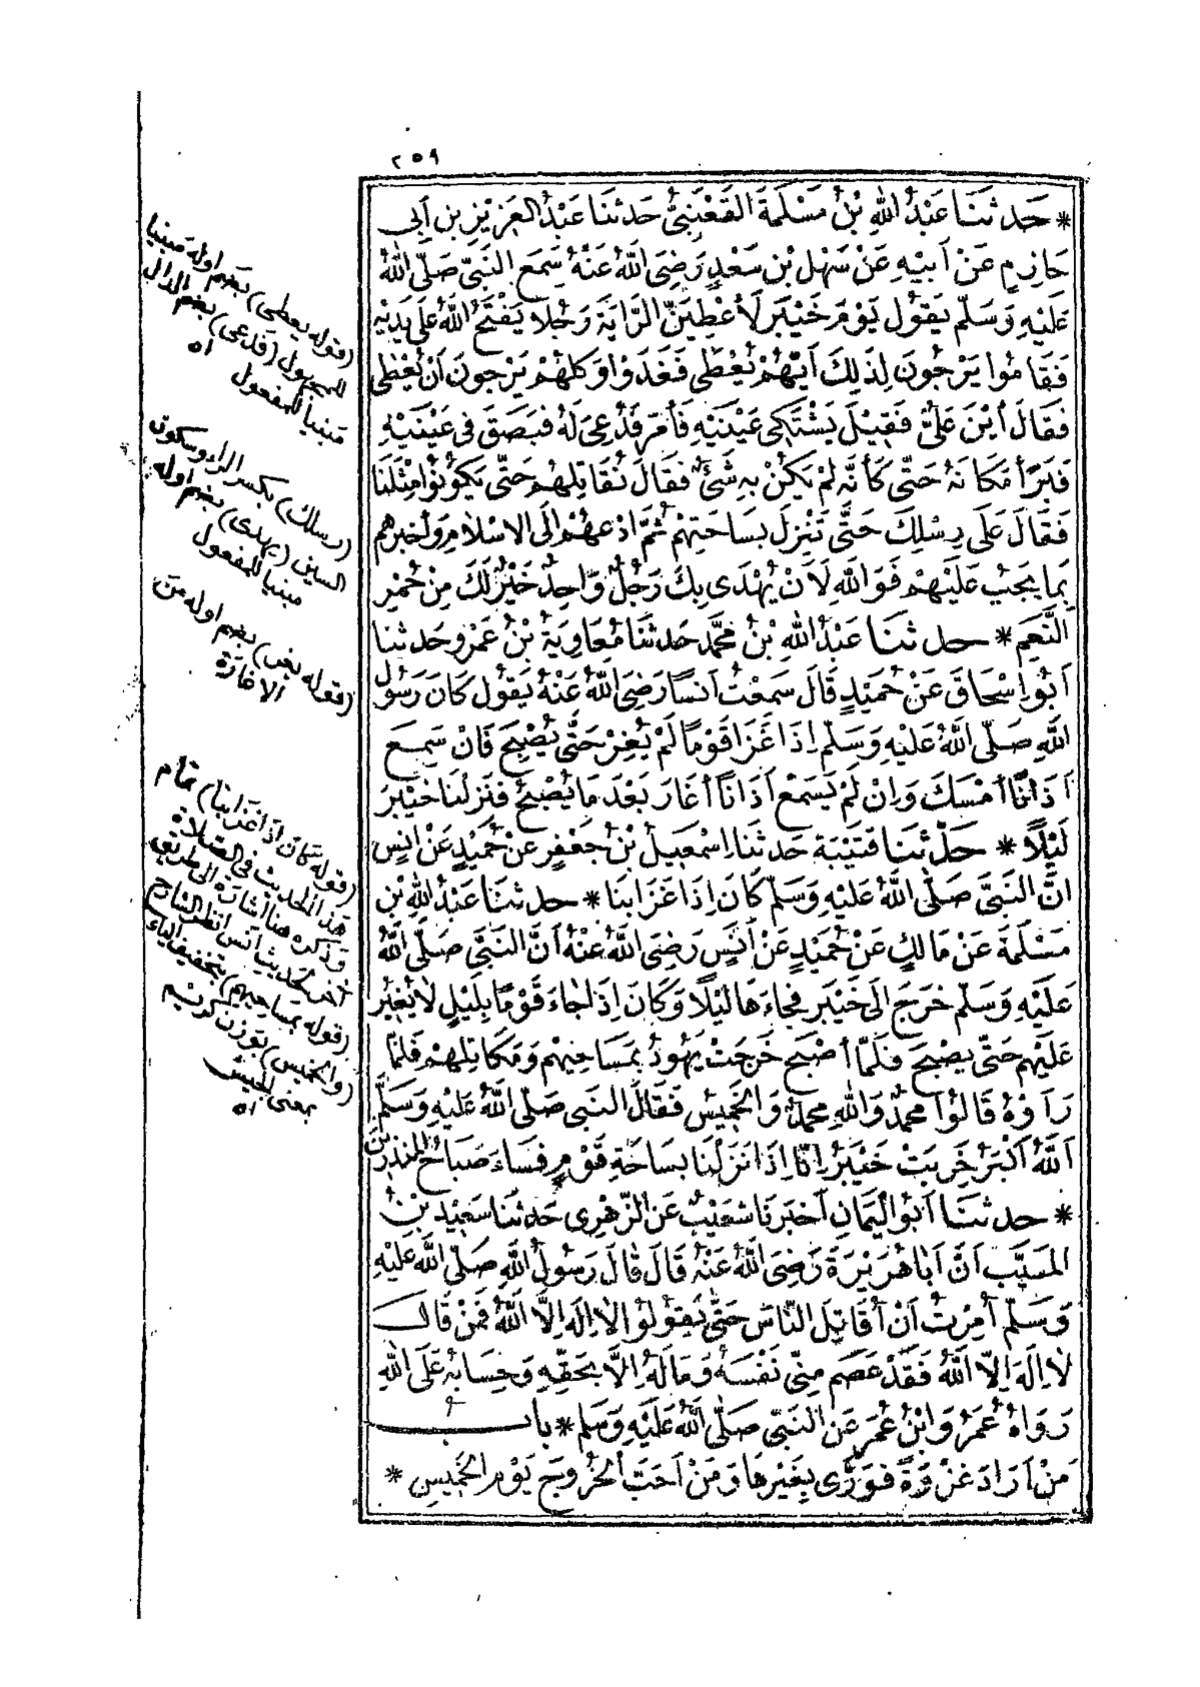 ٢٥٩
* حَدثَنَا عَبْدُ اللهِ بْنُ مَسْلَمَةَ القَعْنَبِىُّ حَدثَنَا عَبْدُ العَزِيزِ بنِ أَبِى
حَازِمٍ عَنْ أَبِيْهِ عَنْ سَهْلِ بْنِ سَعْدٍ رَضِىَ اللهُ عَنْهُ سَمِعَ النَّبِىَّ صَلّى اللهُ
عَلَيْهِ وَسَلّم يَقُولُ يَوْمَ خَيْبَرَ لَأُعْطِيَنَّ الرَّايَةَ رَجُلًا يَفْتَحُ اللهُ عَلَى يَدَيْهِ
فَقَامُوا يَرْجُونَ لِذَلِكَ أَيّهُمْ يُعْطَى فَغَدَوْا وَكلهُمْ يَرْجُونَ أَنْ يُعْطَى
فَقَالَ أَيْنَ عَلِىٌّ فَقِيْلَ يَشْتَكِى عَيْنَيْهِ فَأَمَرَ فَدُعِىَ لَهُ فَبَصَقَ فِى عَيْنَيْهِ
فَبَرَأَ مَكَانَهُ حَتّى كَأَنَّه لَمْ يَكُنْ بِهِ شَىْءٌ فَقَالَ نُقَاتِلُهُم حَتَّى يَكُونُوا مِثْلَنَا
فَقَالَ عَلَى رِسْلِكَ حَتَّى تَنْزِلَ بِسَاحَتِهِمْ ثُمَّ ادْعهُمْ إِلَى الاسْلَامِ وَأَخبِرهُم
بِمَا يَجِبُ عَلَيْهِمْ فَوَاللهِ لَأَنْ يُهْدَى بِكَ رَجُلٌ وَّاحِدٌ خَيْرٌ لَكَ مِنْ حُمْرِ
النَّعَمِ * حدثنَا عَبْدُ اللهِ بْنُ محَمَّد حَدثنَا مُعَاوِيَةُ بْنُ عَمْرو حَدثنَا
أَبُو إِسْحَاقَ عَنْ حُمَيْدٍ قَالَ سَمِعْتُ أَنَسًا رَضِىَ اللهُ عَنْهُ يَقُولُ كَانَ رَسُولُ
اللهِ صَلّى اللهُ عَلَيْهِ وَسَلّم إِذَا غَزَا قَوْمًا لَمْ يُغِرْ حَتَّى يُصْبِحَ فَانْ سَمِعَ
أَذَانًا أَمْسَكَ وَإِنْ لَمْ يَسْمَعْ أَذَانًا أَغَارَ بَعْدَ مَا يُصْبِحُ فَنَزلْنَا خَيْبَرَ
لَيْلًا * حَدَّثنَا قتَيْبَة حَدثنَا إسْمعِيلُ بْنُ جَعْفَرٍ عَنْ حُمَيْدٍ عَنْ أنَسٍ
انَّ النَّبِىَّ صَلَّى اللهُ عَلَيْهِ وَسَلّم كَانَ إِذَا غَزَا بنَا * حدثنَا عَبْدُ اللهِ بْن
مَسْلَمَةَ عَنْ مَالِكٍ عَنْ حُمَيْدٍ عَنْ أَنَسٍ رَضِىَ اللهُ عَنْهُ أَنَّ النَّبِىَّ صَلّى اللهُ
عَلَيْهِ وَسَلّم خَرَجَ إِلَى خَيْبَر فجَاءَهَا لَيْلًا وَكَانَ إِذَا جَاءَ قَوْمًا بِلَيْلٍ لَا يُغِيْرُ
عَلَيْهِم حَتَّى يصْبِحَ فَلَمَّا أَصْبَحَ خَرَجَتْ يَهُودُ بِمَسَاحِيْهِم وَمَكَاتِلِهِمْ فَلمَّا
رَأَوْهُ قَالُوا محَمدٌ وَاللهِ محَمدٌ وَالخَمِيْسُ فَقَالَ النَّبِى صَلّى اللهُ عَلَيْهِ وَسَلَّم
اَللهُ أَكْبَرُ خَرِبَتْ خَيْبَرُ إِنّا إِذَا نَزَلْنَا بِسَاحَةِ قَوْمٍ فسَاءَ صَبَاحُ المنذَرِيْنَ
* حدثنَا أبُو اليَمَانِ أَخبَرنَا شعَيْبٌ عَنِ الزُّهْرِى حَدثنَا سَعِيْدُ بْنُ
المسَيَّبِ أَنَّ أَبَا هُرَيْرَةَ رَضِىَ اللهُ عَنْهُ قَالَ قَالَ رَسُولُ اللهِ صَلّى اللهُ عَلَيْهِ
وَسَلّم أُمِرْتُ أَنْ أُقَاتِلَ النَّاسَ حَتَّى يَقُولُوا لَا إلهَ إِلَّا اللهُ فَمَنْ قَالَ
لَا إِلَهَ إِلَّا اللهُ فَقَدْ عَصَمَ مِنِّى نَفْسَهُ وَمَالَهُ إِلَّا بِحَقِّهِ وَحِسَابُهُ عَلَى اللهِ
رَوَاهُ عُمَرُ وَابْنُ عُمَرَ عَنِ النَّبِىّ صَلَّى اللهُ عَلَيْهِ وَسَلم * باب
مَنْ أَرَادَ غَزْوَةً فوَرَّى بِغَيْرِهَا وَمَنْ أَحَبَّ الخُرُوجَ يَوْمَ الخَمِيسِ *
(قوله يعطى) بضم اوله مبنيا
للمجهول (فدعى) بضم الدال
مبنيا للمفعول اه
(رسلك) بكسر الراء وسكون
السين (يهدى) بضم اوله
مبنيا للمفعول
(قوله يغر) بضم اوله من
الاغارة
(قوله كان اذا غزا بنا) تمام
هذا الحديث فى الصلاة
وذكره هنا اشارة الى طريق
آخر لحديث انس انظر الشارح
(قوله بمساحيهم) بتخفيف الياء
(والخميس) بوزن كريم
بمعنى الجيش اه